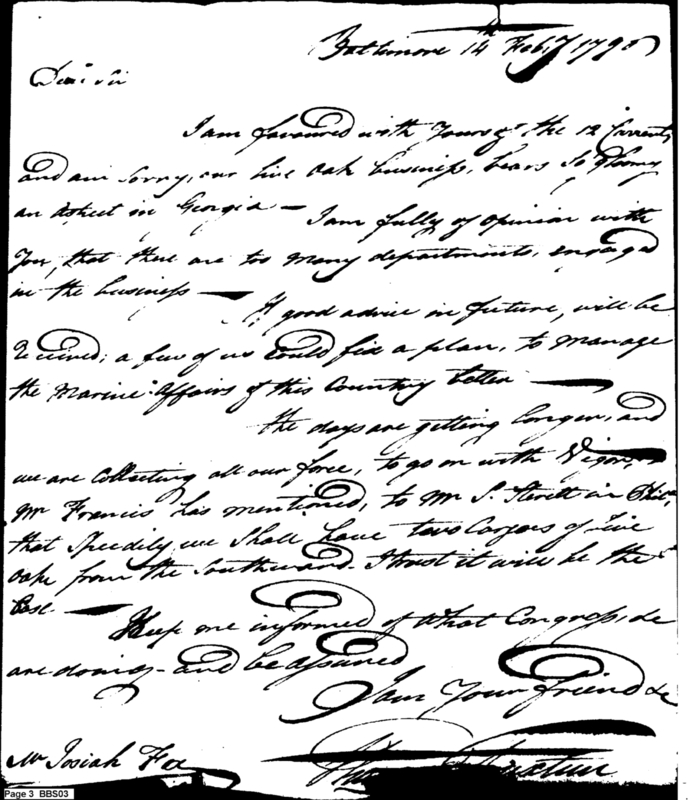 Baltimore 14th Feby 1798
Dear Sir
I am favoured with Yours of the 12 Current,
and am sorry, our live Oak business, bears so gloomy
an aspect in Georgia — I am fully of opinion with
You, that there are too many departments, engaged
in the business — If good advice in future, will be
received; a few of us could fix a plan, to manage
the Marine Affairs of this Country better —
the days are getting longer, and
we are Collecting all our force, to go on with Vigor,
Mr Francis has mentioned, to Mr S. Sterett in Phila,
that Speedily we Shall have two Cargoes of Live
Oak from the Southward. I trust it will be the
Case. —
Keep me informed of what Congress, &c
are doing - and be assured
I am Your friend &c
Truxtun
Mr Josiah Fox
Page 3 BBS03